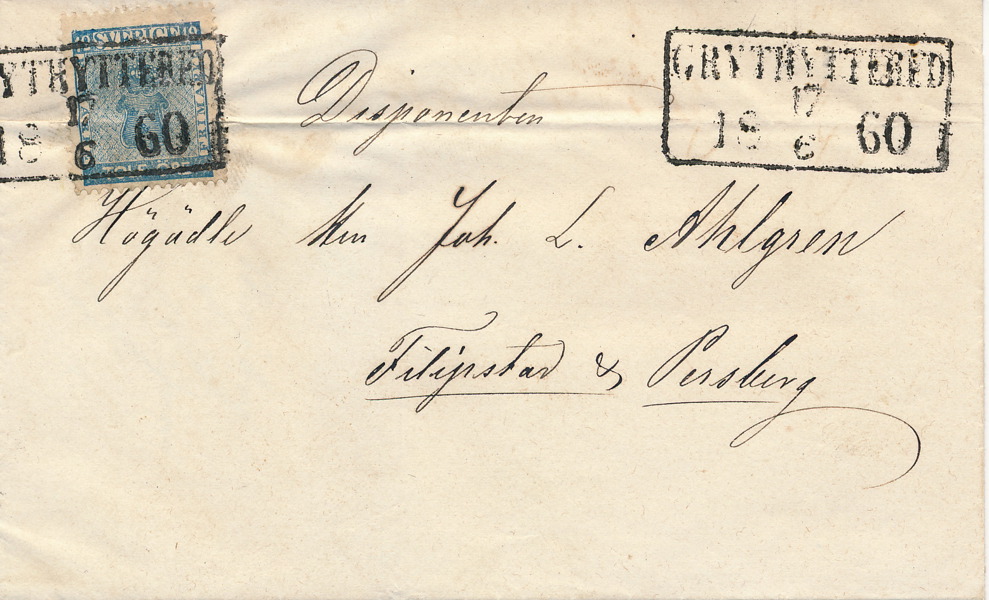 SVERIGE
FRIMÄRKE
YTHYTTERED
17
18 60
6
GRYTHYTTERED
17
18 60
6
Disponenten
Högädle Herr Joh. L. Ahlgren
Filipstad & Persberg